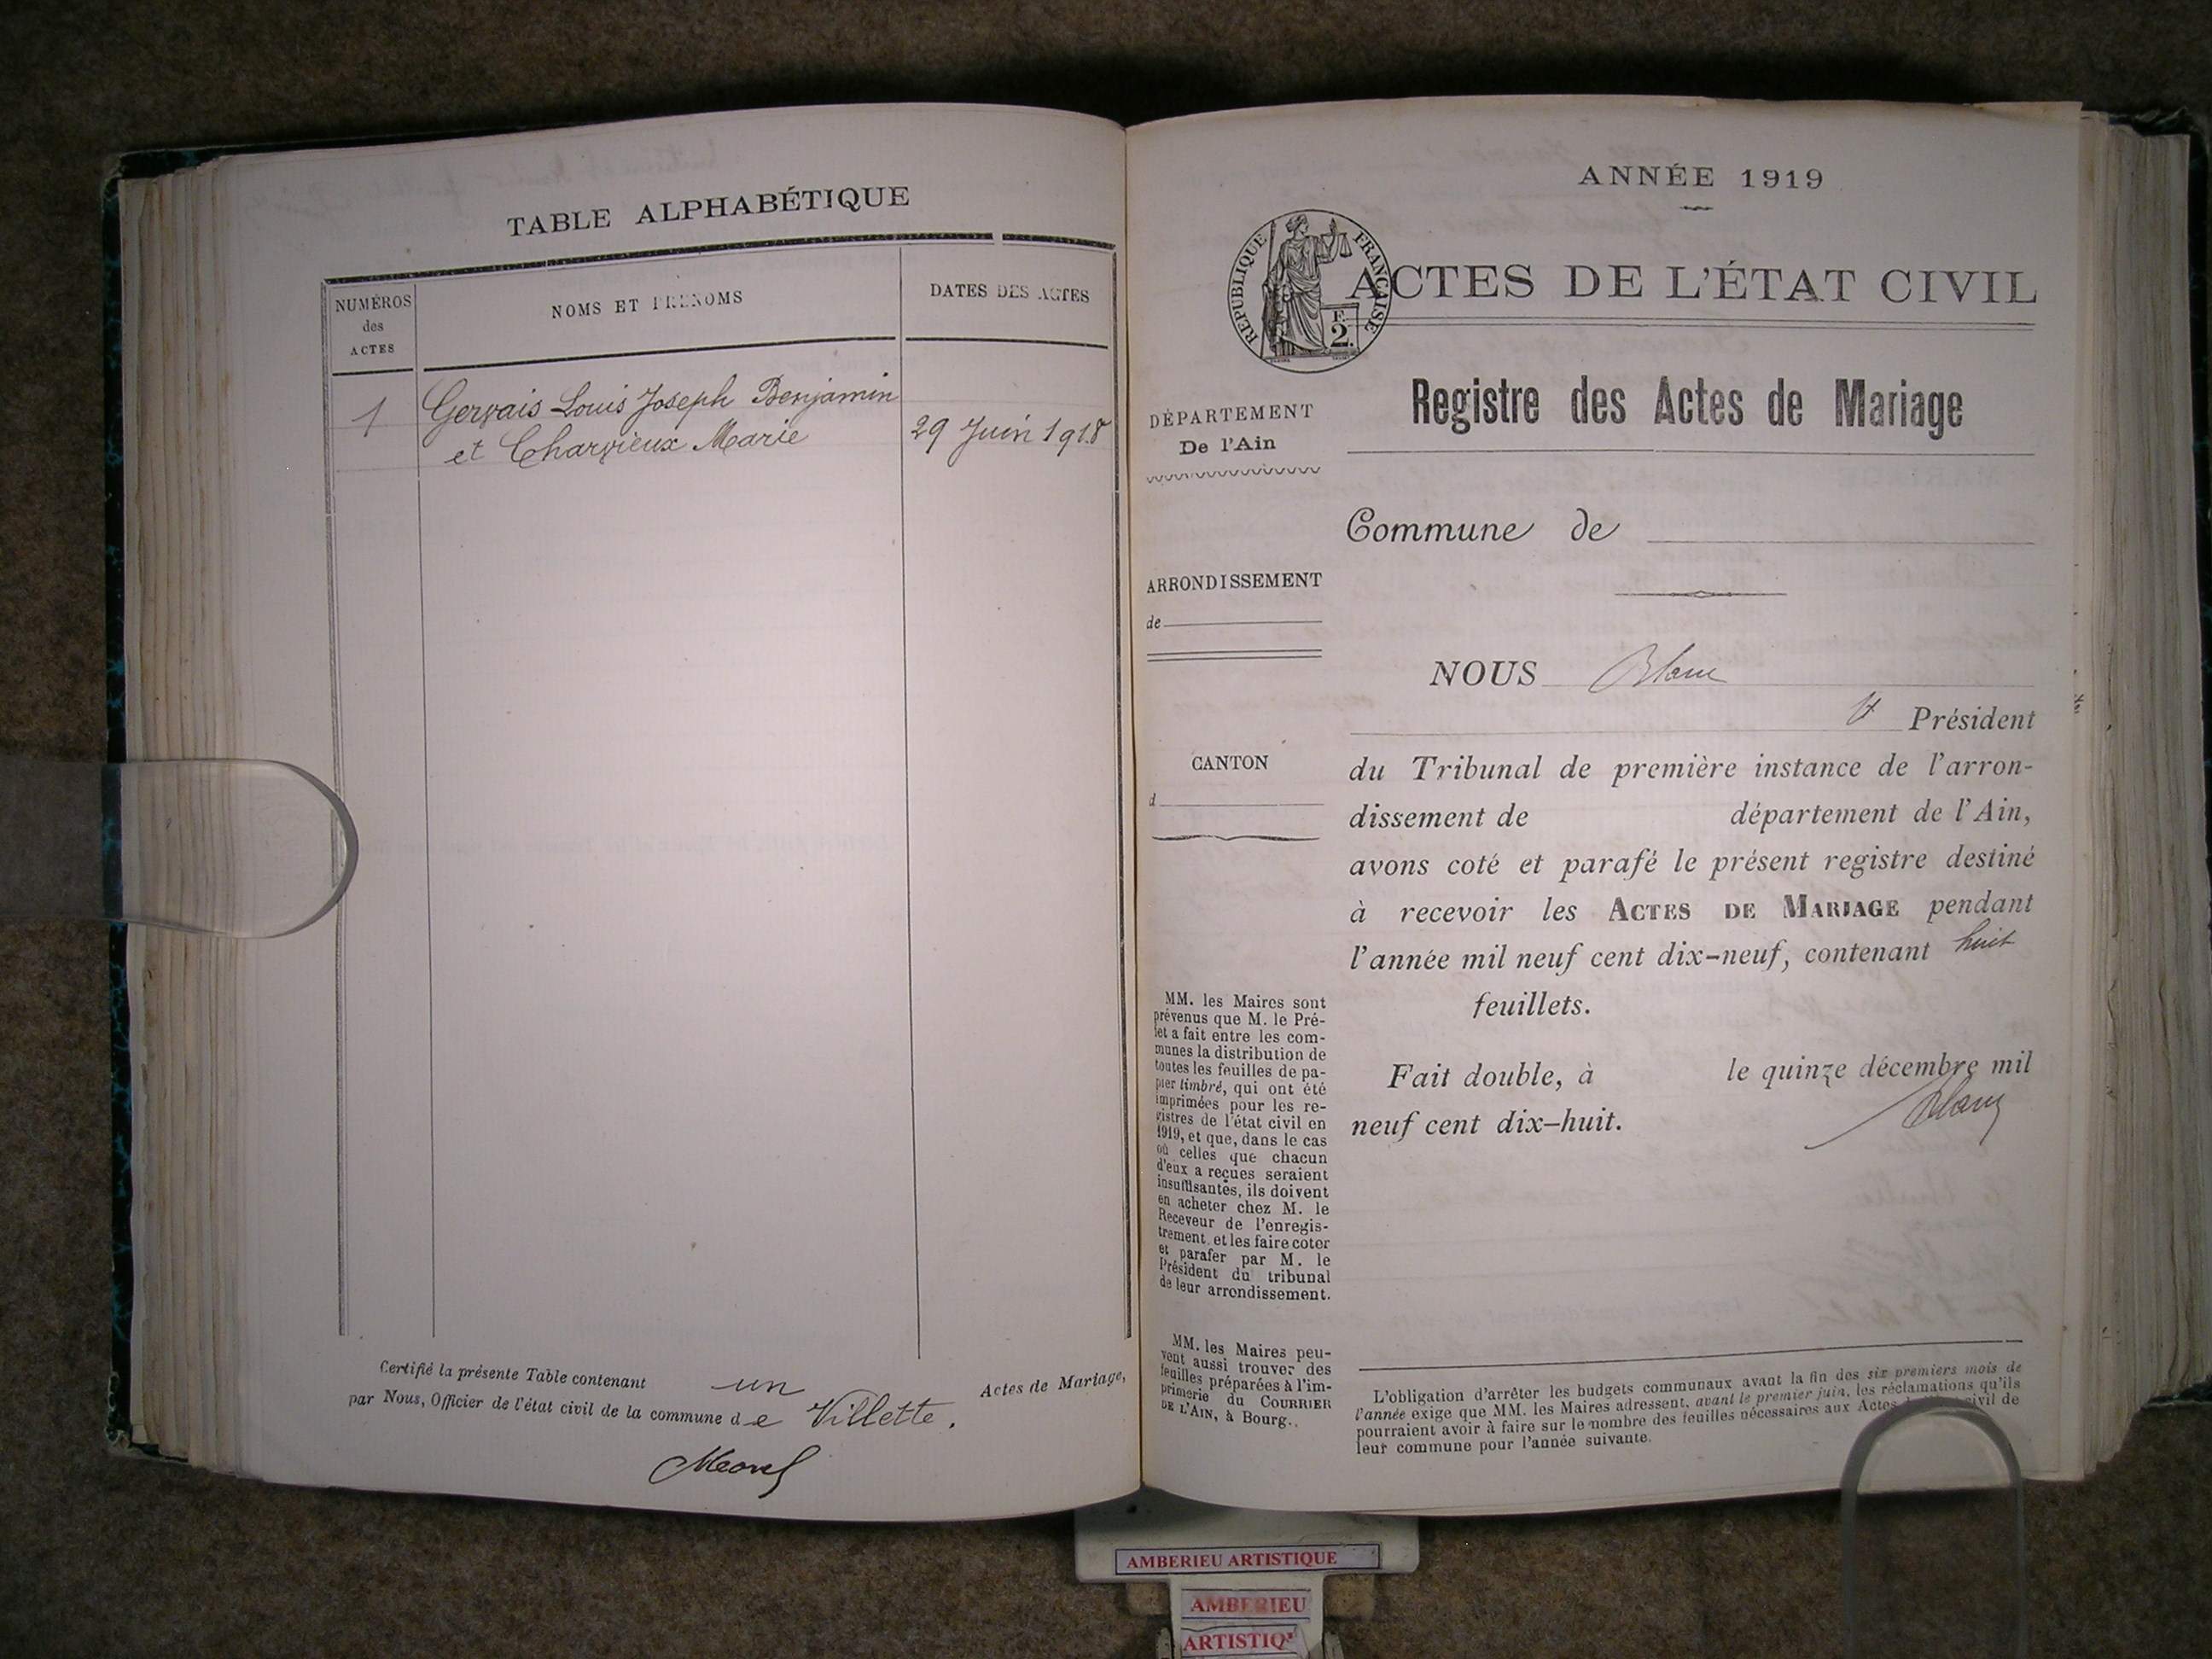 TABLE ALPHABÉTIQUE
NUMÉROS
des
ACTES
NOMS ET PRÉNOMS
DATES DES ACTES
1
Gervais Louis Joseph Benjamin
et Charvieux Marie
29 Juin 1918
Certifié la présente Table contenant un Actes de Mariage,
par Nous, Officier de l'état civil de la commune de Villette.
Morel
ANNÉE 1919
RÉPUBLIQUE FRANÇAISE
F.
2.
ACTES DE L'ÉTAT CIVIL
DÉPARTEMENT
De l'Ain
Registre des Actes de Mariage
Commune de
ARRONDISSEMENT
de
CANTON
d
NOUS Blanc
Président
du Tribunal de première instance de l'arron-
dissement de département de l'Ain,
avons coté et parafé le présent registre destiné
à recevoir les ACTES DE MARIAGE pendant
l'année mil neuf cent dix-neuf, contenant huit
feuillets.
Fait double, à le quinze décembre mil
neuf cent dix-huit.
Blanc
MM. les Maires sont
prévenus que M. le Pré-
fet a fait entre les com-
munes la distribution de
toutes les feuilles de pa-
pier timbré, qui ont été
imprimées pour les re-
gistres de l'état civil en
1919, et que, dans le cas
où celles que chacun
d'eux a reçues seraient
insuffisantes, ils doivent
en acheter chez M. le
Receveur de l'enregis-
trement, et les faire coter
et parafer par M. le
Président du tribunal
de leur arrondissement.
MM. les Maires peu-
vent aussi trouver des
feuilles préparées à l'im-
primerie du COURRIER
DE L'AIN, à Bourg.
L'obligation d'arrêter les budgets communaux avant la fin des six premiers mois de
l'année exige que MM. les Maires adressent, avant le premier juin, les réclamations qu'ils
pourraient avoir à faire sur le nombre des feuilles nécessaires aux Actes civil de
leur commune pour l'année suivante.
AMBERIEU ARTISTIQUE
AMBERIEU
ARTISTIQ